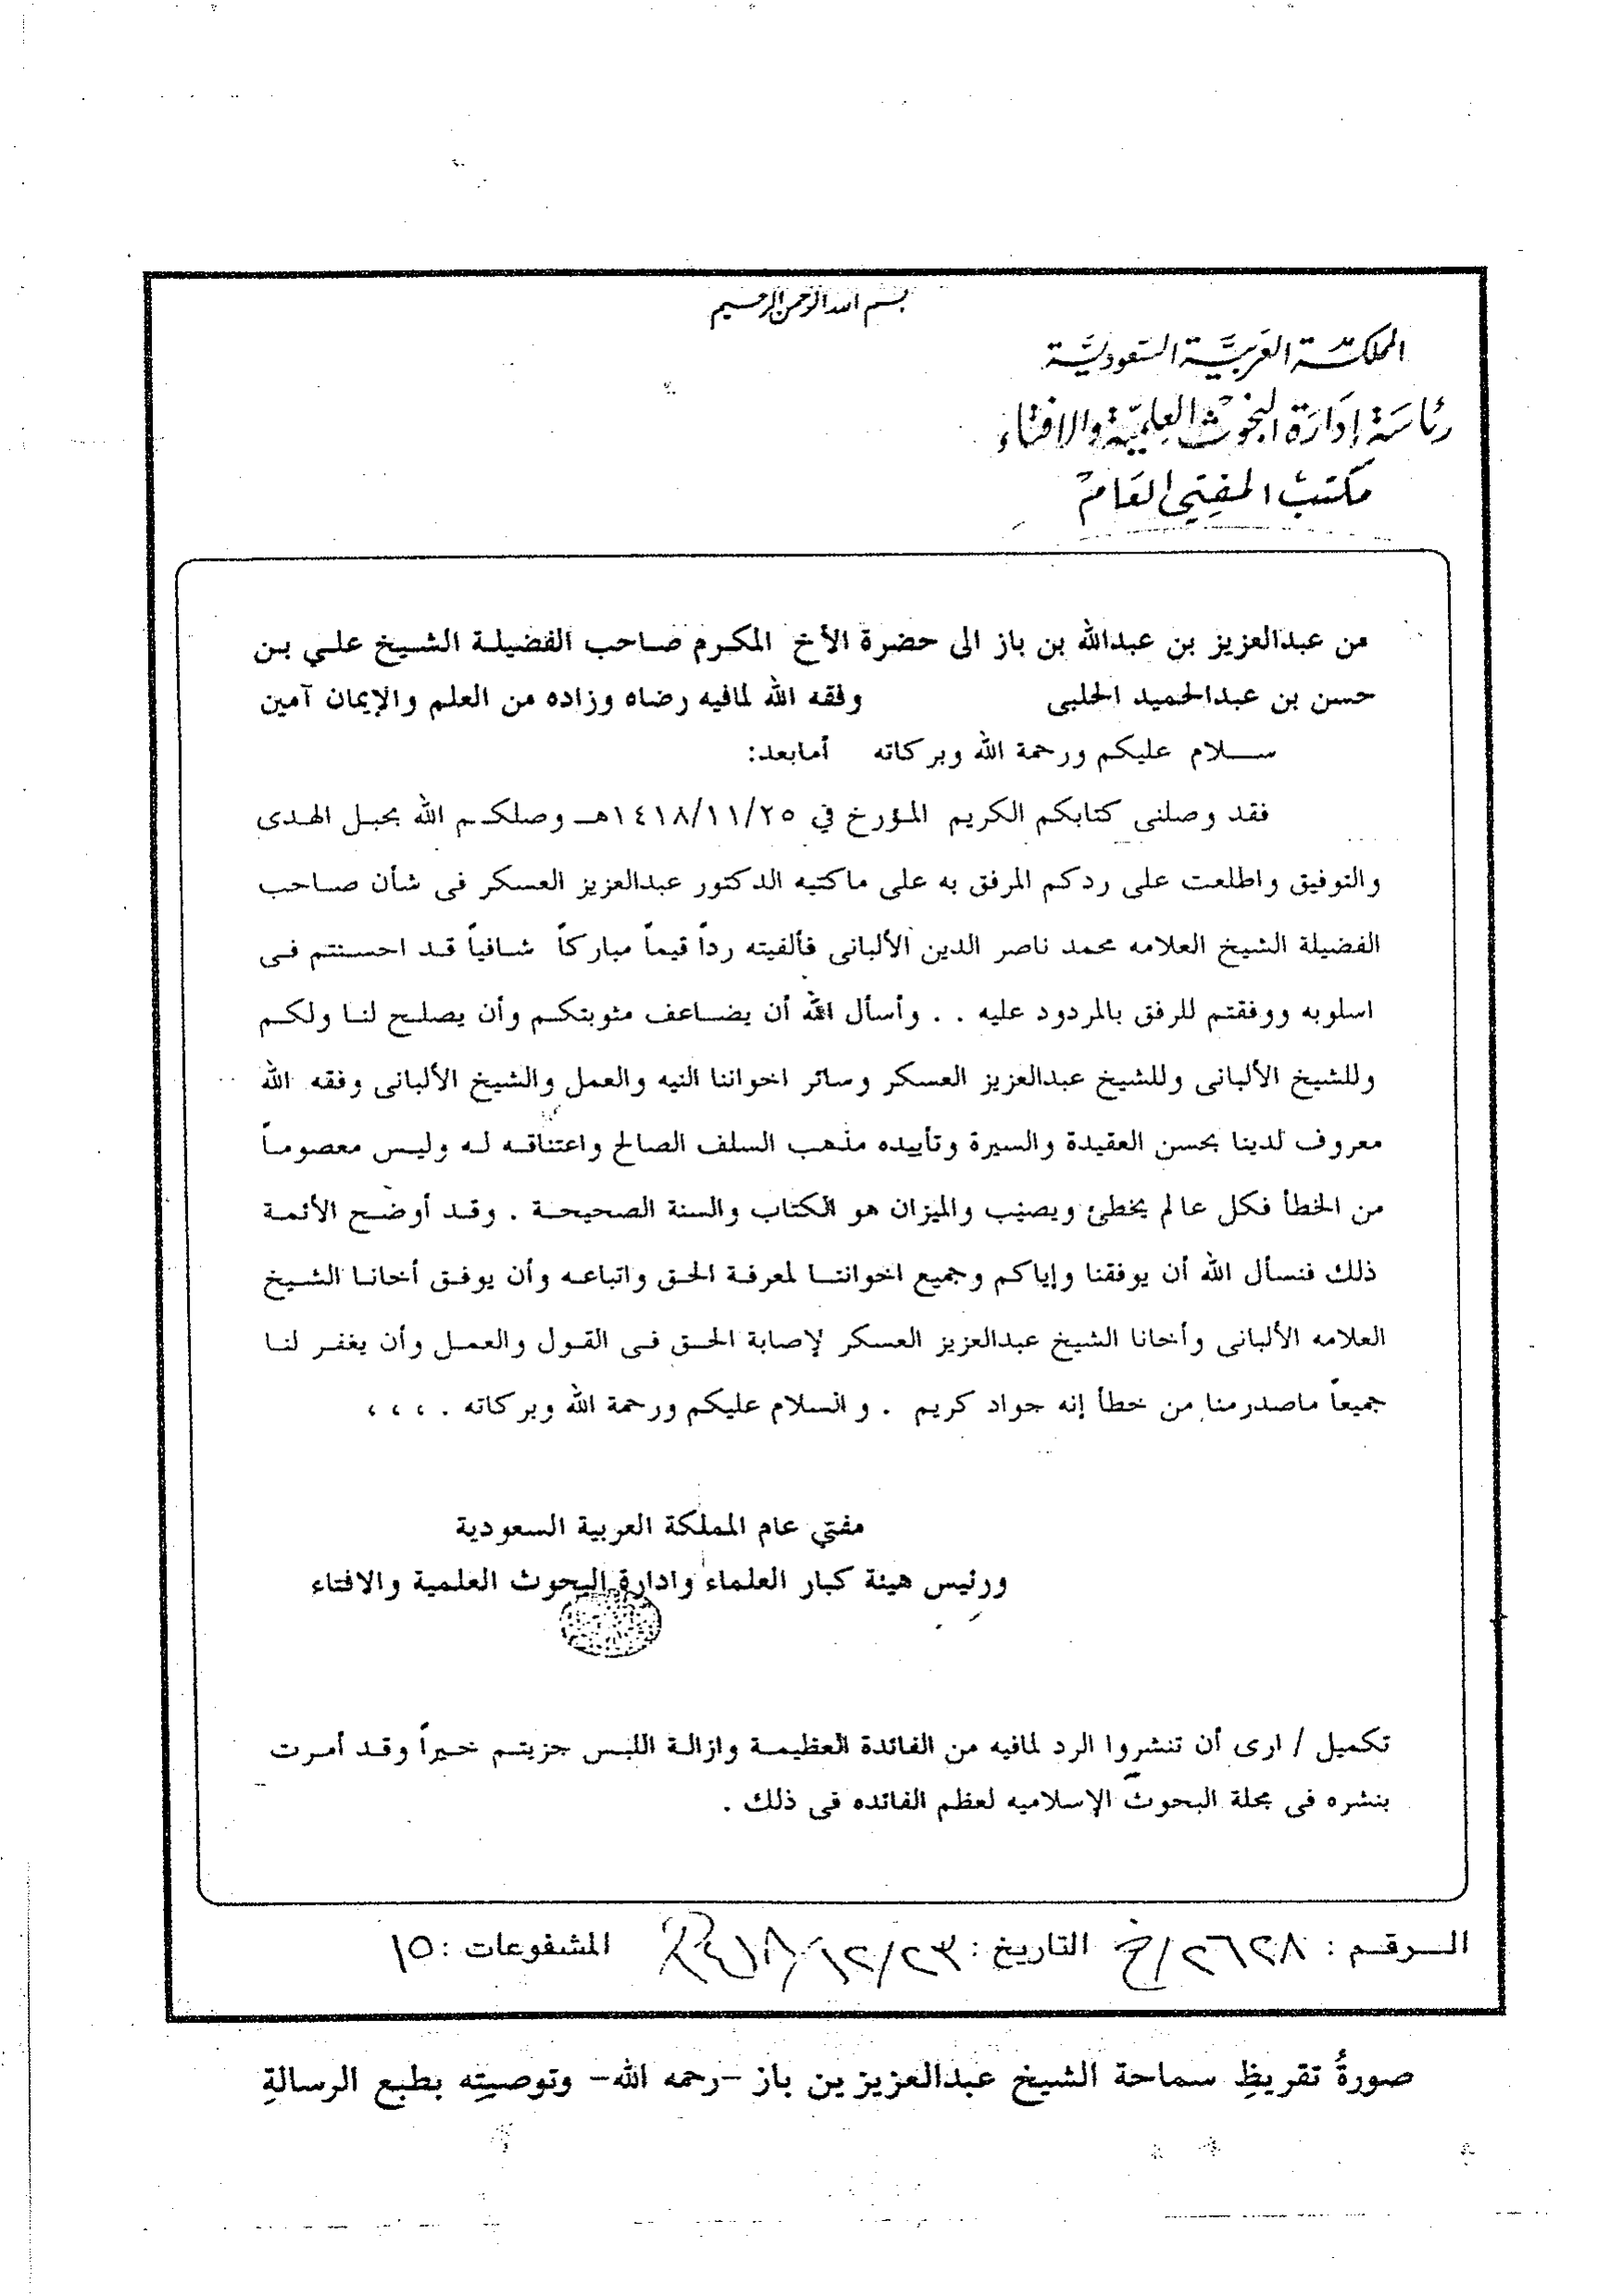 بسم الله الرحمن الرحيم
المملكة العربية السعودية
رئاسة إدارة البحوث العلمية والافتاء
مكتب المفتي العام
من عبدالعزيز بن عبدالله بن باز الى حضرة الأخ المكرم صاحب الفضيلة الشيخ علي بن
حسن بن عبدالحميد الحلبى وفقه الله لمافيه رضاه وزاده من العلم والإيمان آمين
سلام عليكم ورحمة الله وبركاته أمابعد:
فقد وصلنى كتابكم الكريم المؤرخ في ١٤١٨/١١/٢٥هـ وصلكم الله بحبل الهدى
والتوفيق واطلعت على ردكم المرفق به على ماكتبه الدكتور عبدالعزيز العسكر فى شأن صاحب
الفضيلة الشيخ العلامه محمد ناصر الدين الألبانى فألفيته رداً قيماً مباركاً شافياً قد احسنتم فى
اسلوبه ووفقتم للرفق بالمردود عليه . . وأسأل الله أن يضاعف مثوبتكم وأن يصلح لنا ولكم
وللشيخ الألبانى وللشيخ عبدالعزيز العسكر وسائر اخواننا النيه والعمل والشيخ الألبانى وفقه الله
معروف لدينا بحسن العقيدة والسيرة وتأييده مذهب السلف الصالح واعتناقه له وليس معصوماً
من الخطأ فكل عالم يخطئ ويصيب والميزان هو الكتاب والسنة الصحيحة . وقد أوضح الأئمة
ذلك فنسأل الله أن يوفقنا وإياكم وجميع اخواننا لمعرفة الحق واتباعه وأن يوفق أخانا الشيخ
العلامه الألبانى وأخانا الشيخ عبدالعزيز العسكر لإصابة الحق فى القول والعمل وأن يغفر لنا
جميعاً ماصدرمنا من خطأ إنه جواد كريم . والسلام عليكم ورحمة الله وبركاته . ، ، ،
مفتي عام المملكة العربية السعودية
ورئيس هيئة كبار العلماء وادارة البحوث العلمية والافتاء
تكميل / ارى أن تنشروا الرد لمافيه من الفائدة العظيمة وازالة اللبس جزيتم خيراً وقد أمرت
بنشره فى مجلة البحوث الإسلاميه لعظم الفائده فى ذلك .
الرقم : ٢٦٢٨/خ التاريخ : ١٤١٨/١٢/٢٣ المشفوعات : ١٥
صورةُ تقريظِ سماحة الشيخ عبدالعزيز بن باز -رحمه الله- وتوصيتِه بطبع الرسالةِ